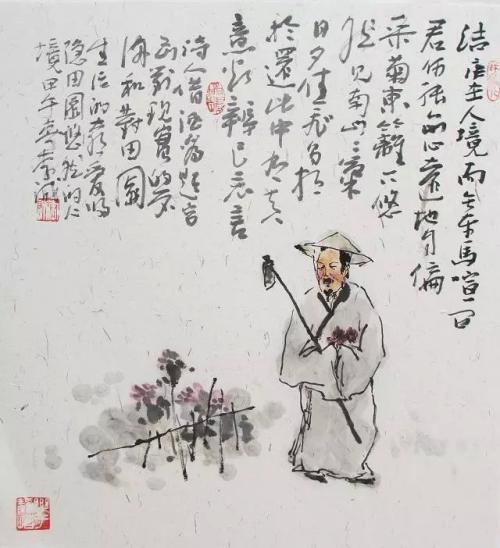 结庐在人境而无车马喧问
君何能尔心远地自偏
采菊东篱下悠
然见南山山气
日夕佳飞鸟相
與還此中有真
意欲辩已忘言
诗人借酒为题写
出对现实的不
满和对田园
生活的爱
隐田园悠然的
境甲午春